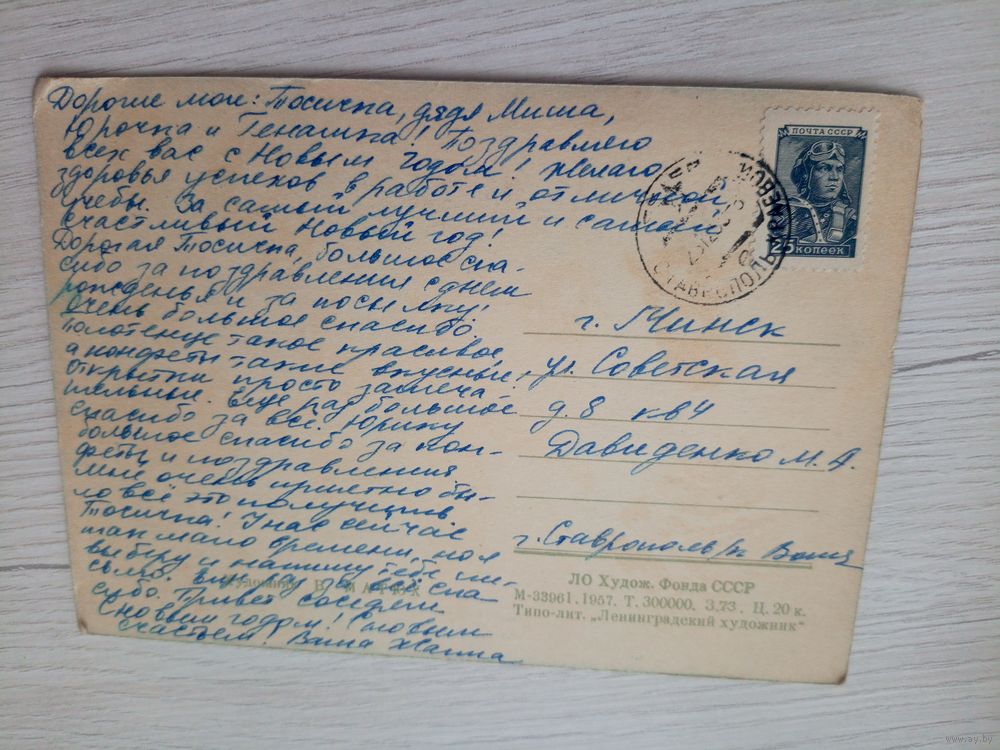 Дорогие мои: Тосичка, дядя Миша,
Юрочка и Генашка! Поздравляю
всех вас с Новым годом! Желаю
здоровья успехов в работе и отличной
учебы. За самый лучший и самый
счастливый Новый год!
Дорогая Тосичка, большое спа-
сибо за поздравления с днем
рожденья и за посылку!
Очень большое спасибо.
Полотенце такое красивое,
а конфеты такие вкусные,
открытки просто замеча-
тельные. Еще раз большое
спасибо за всё. Юрику
большое спасибо за кон-
феты и поздравления
мне очень приятно бы-
ло всё это получить
Тосичка! У нас сейчас
так мало времени, но я
выберу и напишу тебе пи-
сьмо. Ещё раз за всё спа
сибо. Привет соседям
С новым годом! С новым
счастьем! Ваша Жанна
ПОЧТА СССР
25 КОПЕЕК
СТАВРОПОЛЬ
г. Минск
ул. Советская
д. 8 кв 4
Давиденко М. А.
г. Ставрополь/н Волге
Художник В. МАТЮХ
ЛО Худож. Фонда СССР
М-33961. 1957. Т. 300000. З.73. Ц. 20 к.
Типо-лит. „Ленинградский художник"
www.ay.by